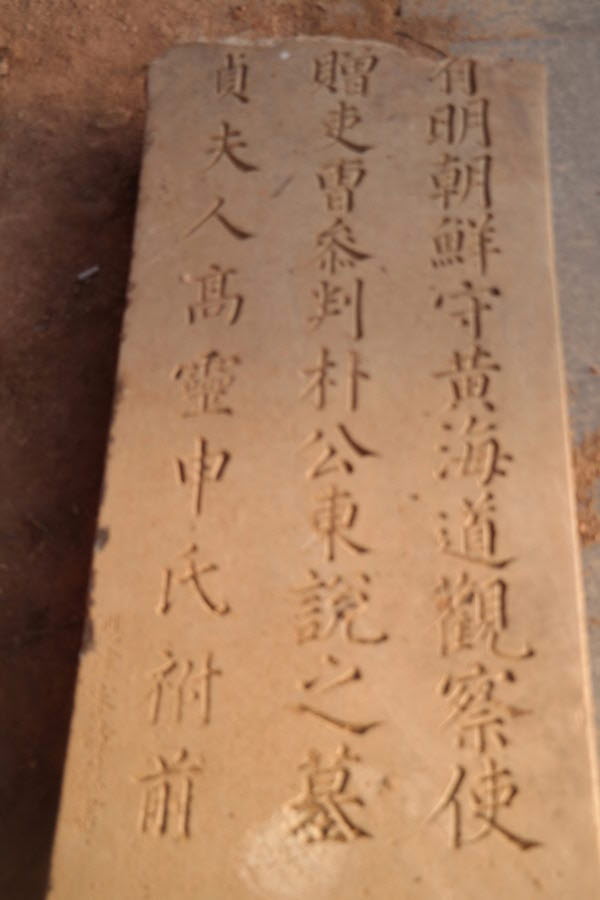 有明朝鮮守黃海道觀察使
贈吏曹叅判朴公東說之墓
貞夫人高靈申氏祔前